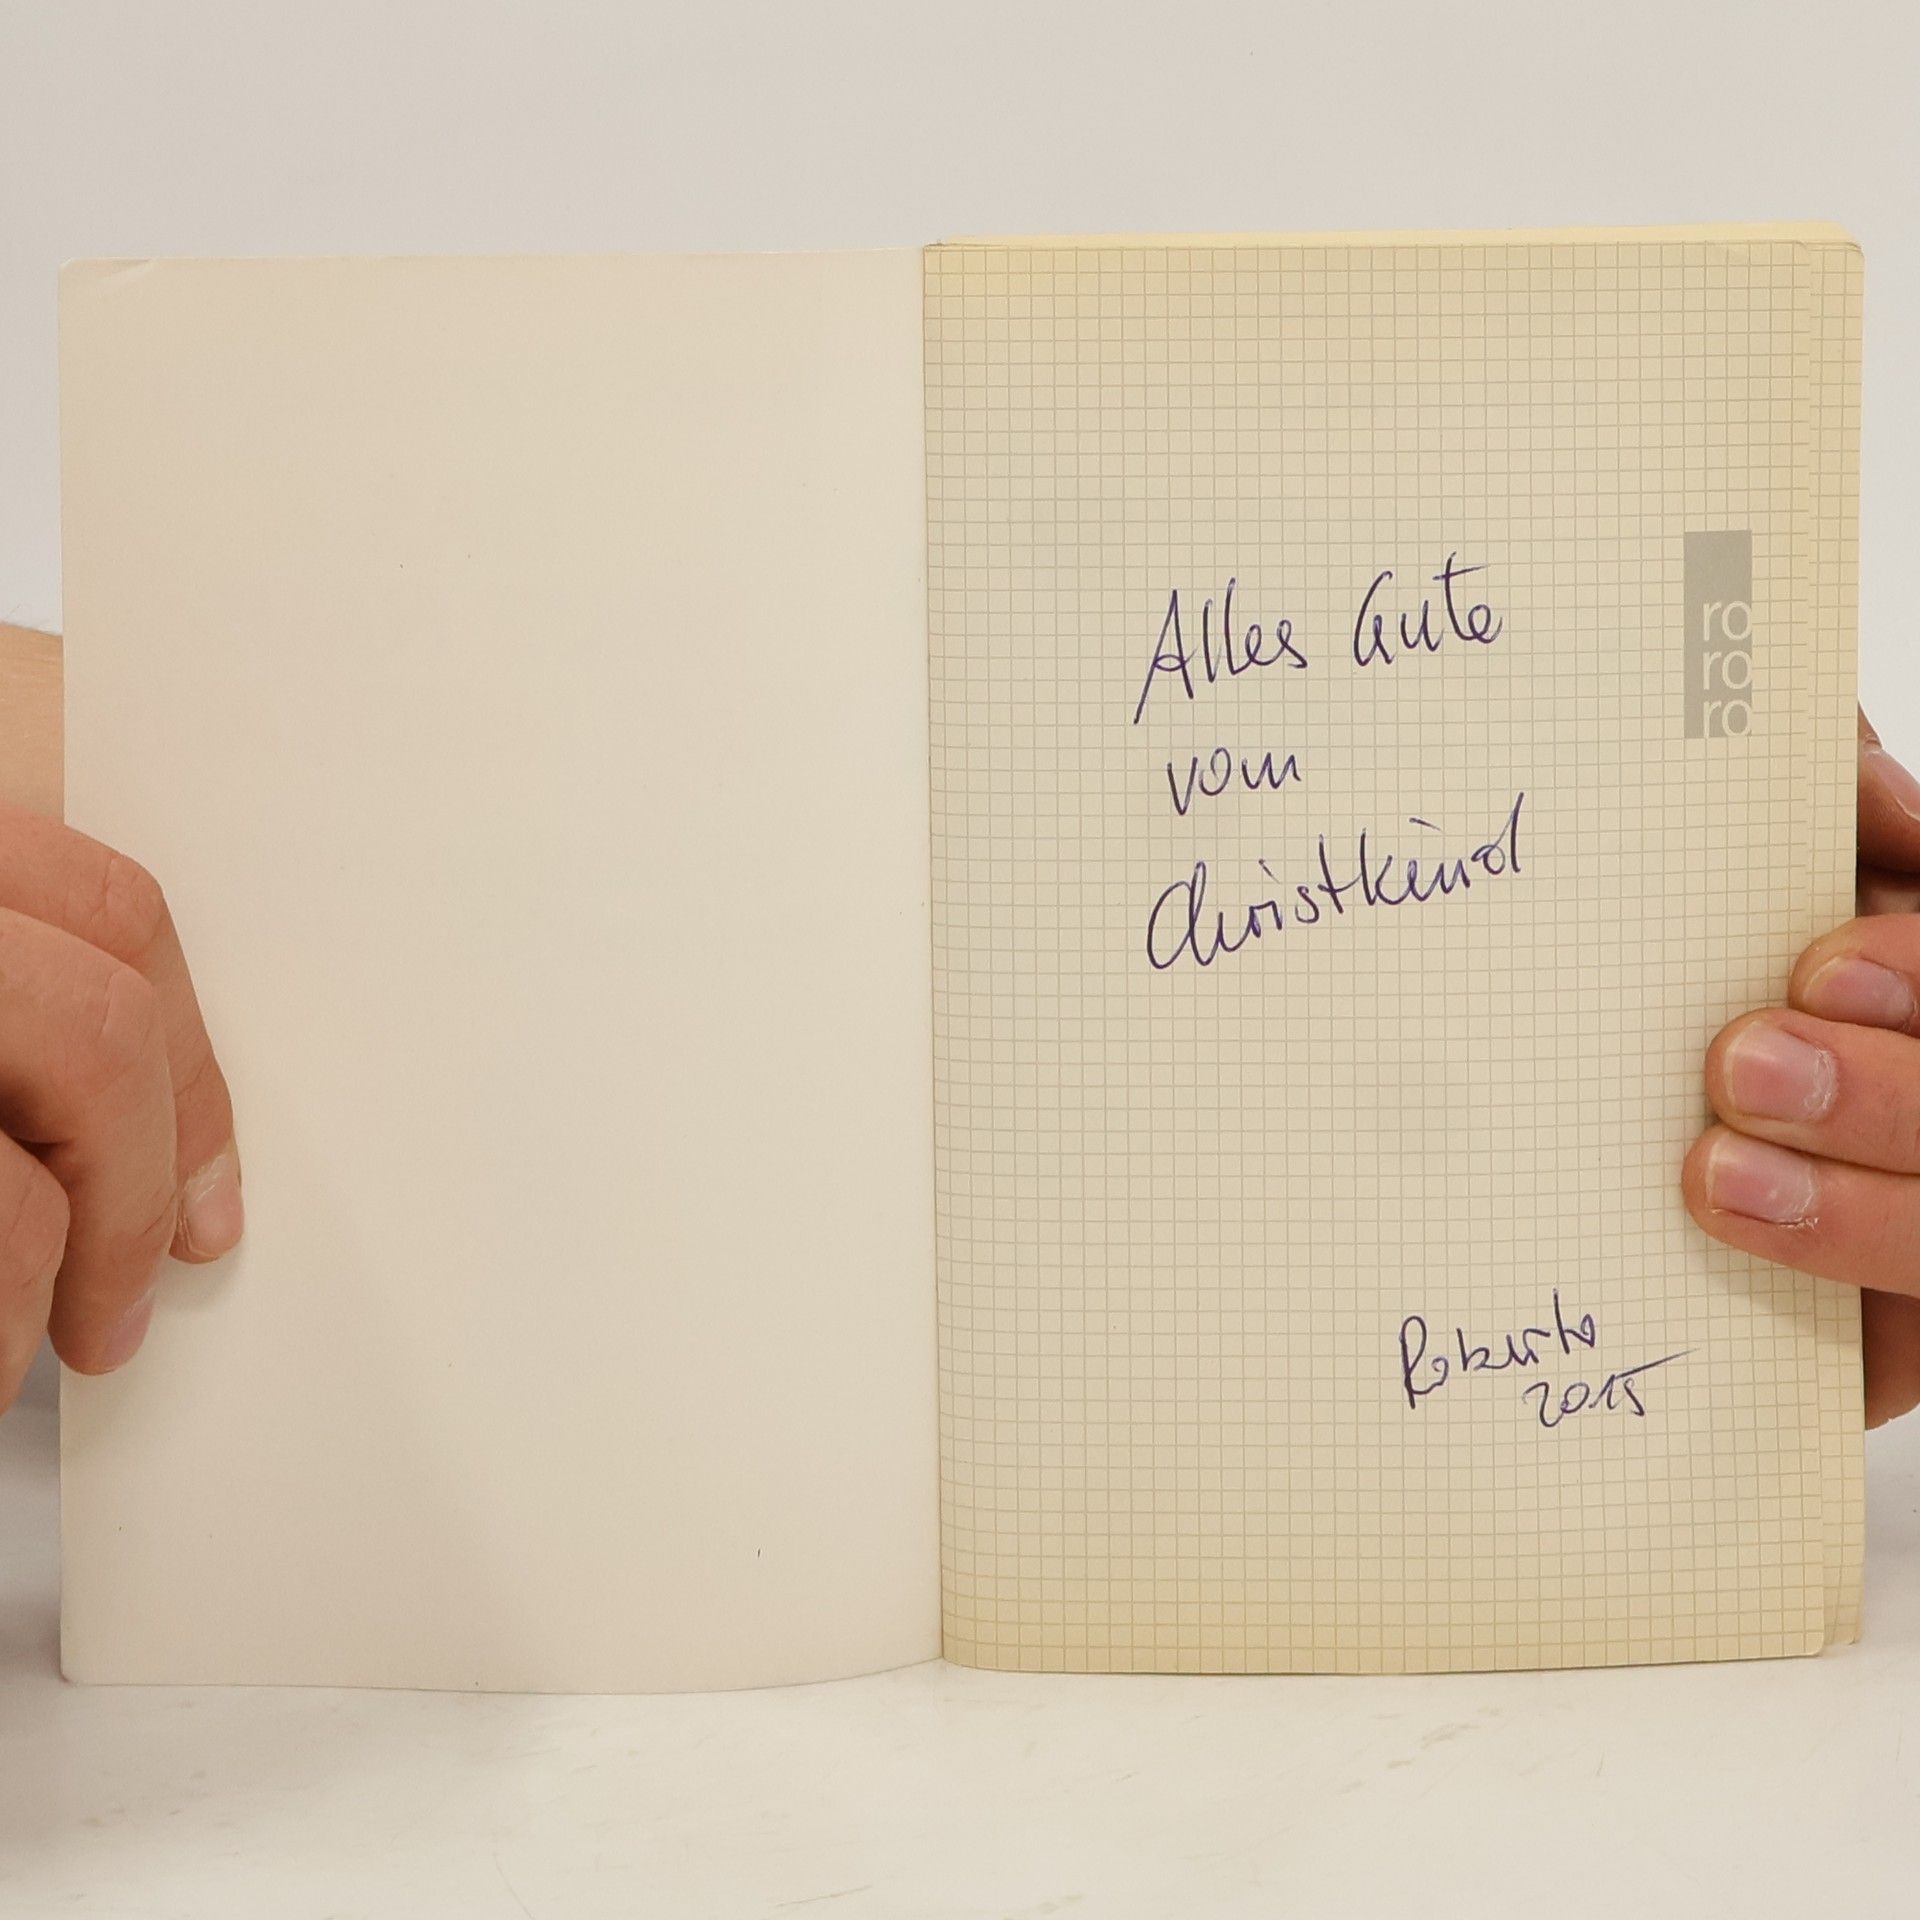 Alles Gute
vom
Christkind
ro
ro
ro
Roberto
2015